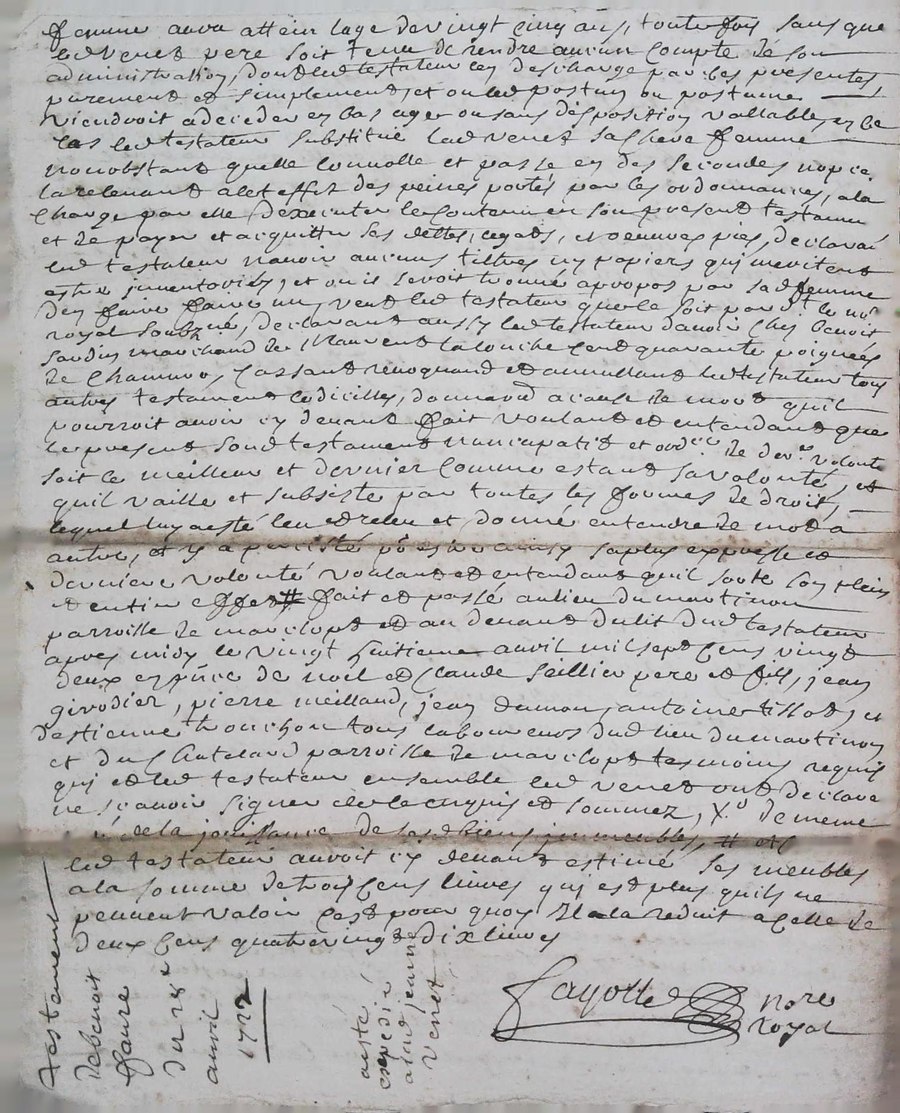 femme aura attein lage de vingt cinq ans, toute fois sans que
led Venet pere soit tenu de rendre aucun compte de son
administration, dont led testateur len descharge par ces presentes
purement et simplement, et ou led postum ou postume
viendroit a deceder en bas age ou sans disposition vallable, en ce
cas led testateur substitue lad venet sa chere femme
nonobstant quelle convolle et passe en des secondes nopce,
la relevant a cet effet des peines portés par les ordonnances, a la
charge par elle dexecuter le contenu en son present testamen
et de payer et acquitter ses dettes, legats, et oeuvres pies, declarant
led testateur navoir aucuns tiltres ny papiers qui meritent
estre inventoriés, et ou il seroit trouvé apropos par sad femme
den faire faire un, veut led testateur que ce soit par led le no.re
royal soubzné, declarant aussy led testateur davoir chez benoit
Jardin marchand de la somme cent quarante poignées
de chanvre, cassant revoquand et annullant led testateur tous
autres testament codicilles, donnaõns a cause de mort quil
pourroit avoir cy devant fait voulant et entendant que
le present soud testament nuncupatif et ord.re de der.re volonté
soit le meilleur et dernier comme estant sa volonté, et
quil vaille et subsiste par toutes les formes de droit,
lequel luy a esté leu et releu et donné entendre de mot a
autre, et y a percisté pour sa plus expresse et
derniere volonté voulant et entendant quil sorte son plein
et entier effet # fait et passé au lieu du martinon
parroisse de marclopt et au devant du lit dud testateur
apres midy le vingt huitieme avril mil sept cens vingt
deux en p.nce de noel et claude seillier pere et fils, jean
girodier, pierre meilland, jean dumon, antoine tillot, et
destienne thonchon tous laboureurs dud lieu du martinon
et du chatelard parroisse de marclopt tesmoins requis
qui et led testateur ensemble led venet ont declare
ne scavoir signer de ce enquis et sommez, X.o de meme
de la jouissance de sesd biens immeubles, # et
led testateur auroit cy devant estimé ses meubles
a la somme de trois cens livres qui est plus quils ne
peuvent valoir cest pour quoy Il a la reduit a celle de
deux cens quatre vingt dix livres
fayolle no.re
royal
Testament
de benoit
faure
du 28.e
avril
1722
a esté
expedié
a lad jeanne
Venet